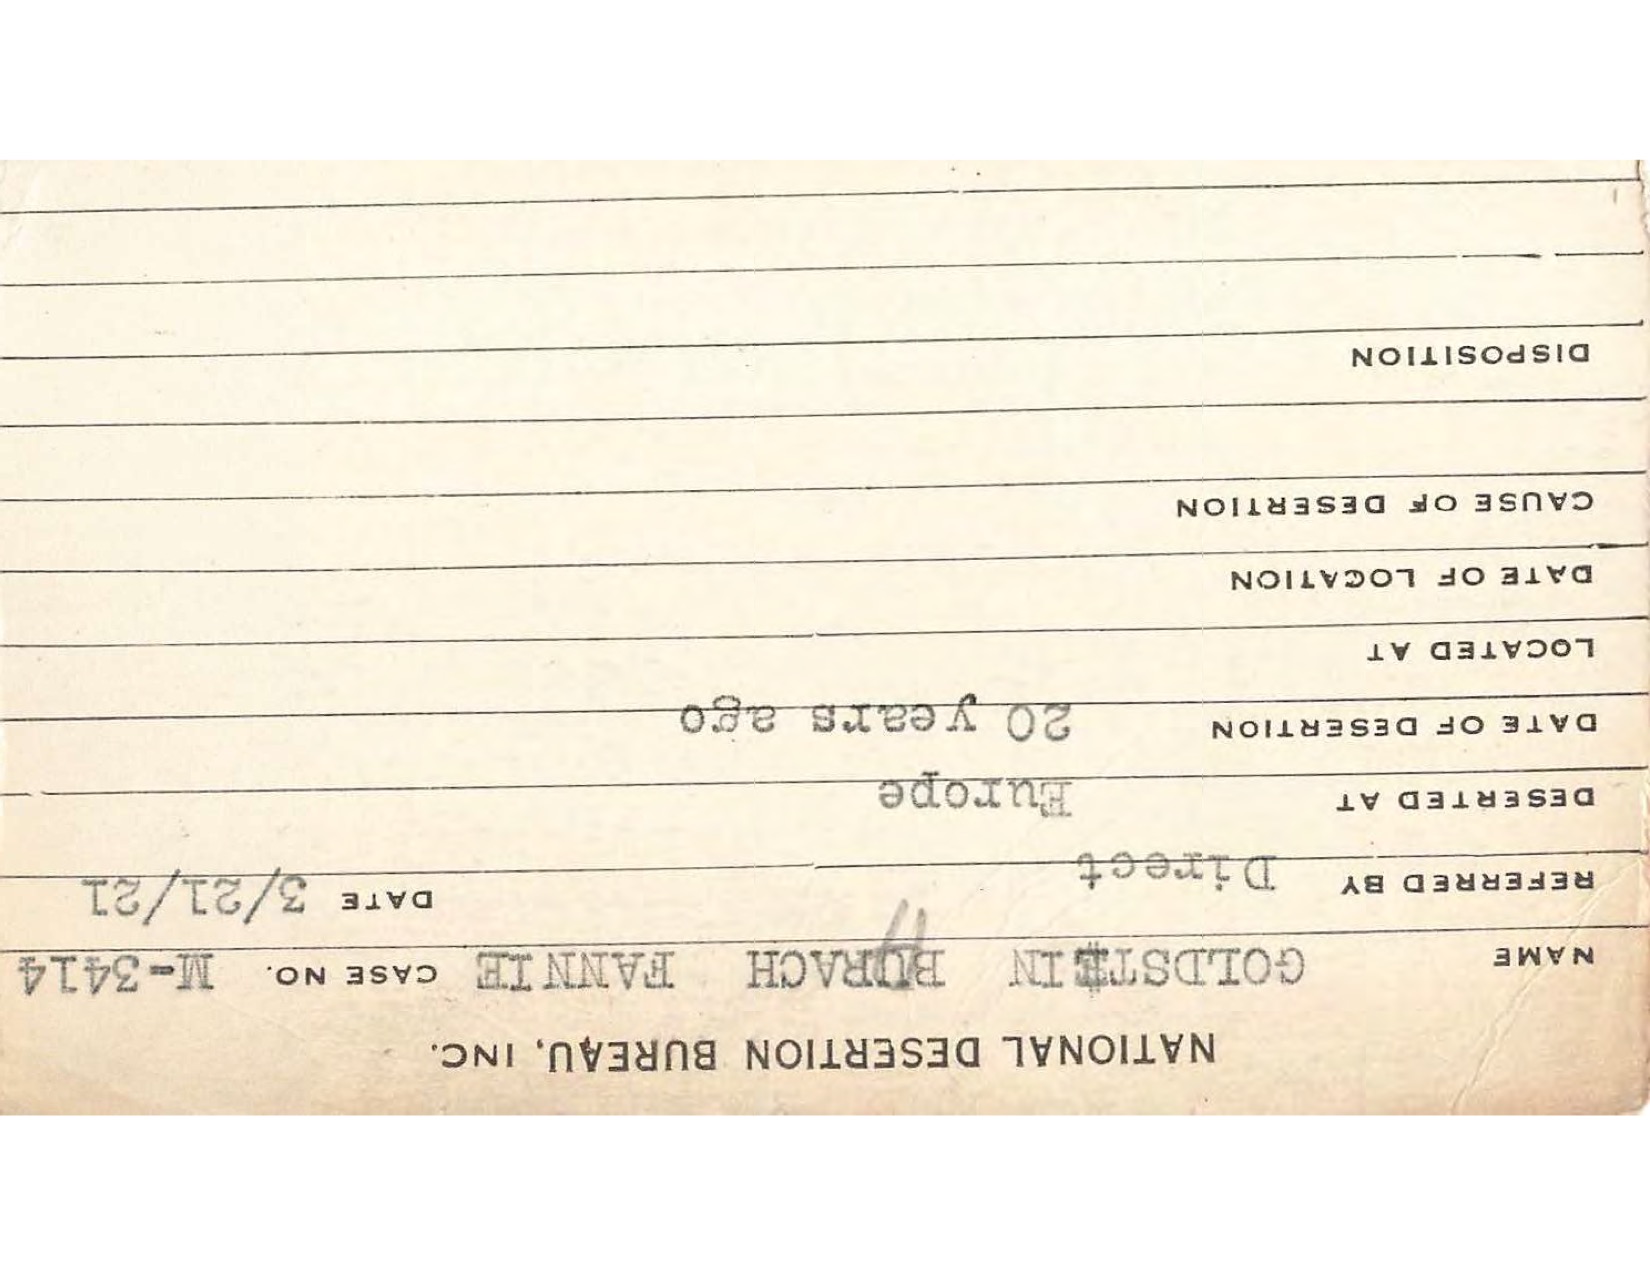 NATIONAL DESERTION BUREAU, INC.
NAME GOLDSTEIN BURACH FANNIE CASE NO. M-3414
REFERRED BY Direct DATE 3/21/21
DESERTED AT Europe
DATE OF DESERTION 20 years ago
LOCATED AT
DATE OF LOCATION
CAUSE OF DESERTION
DISPOSITION